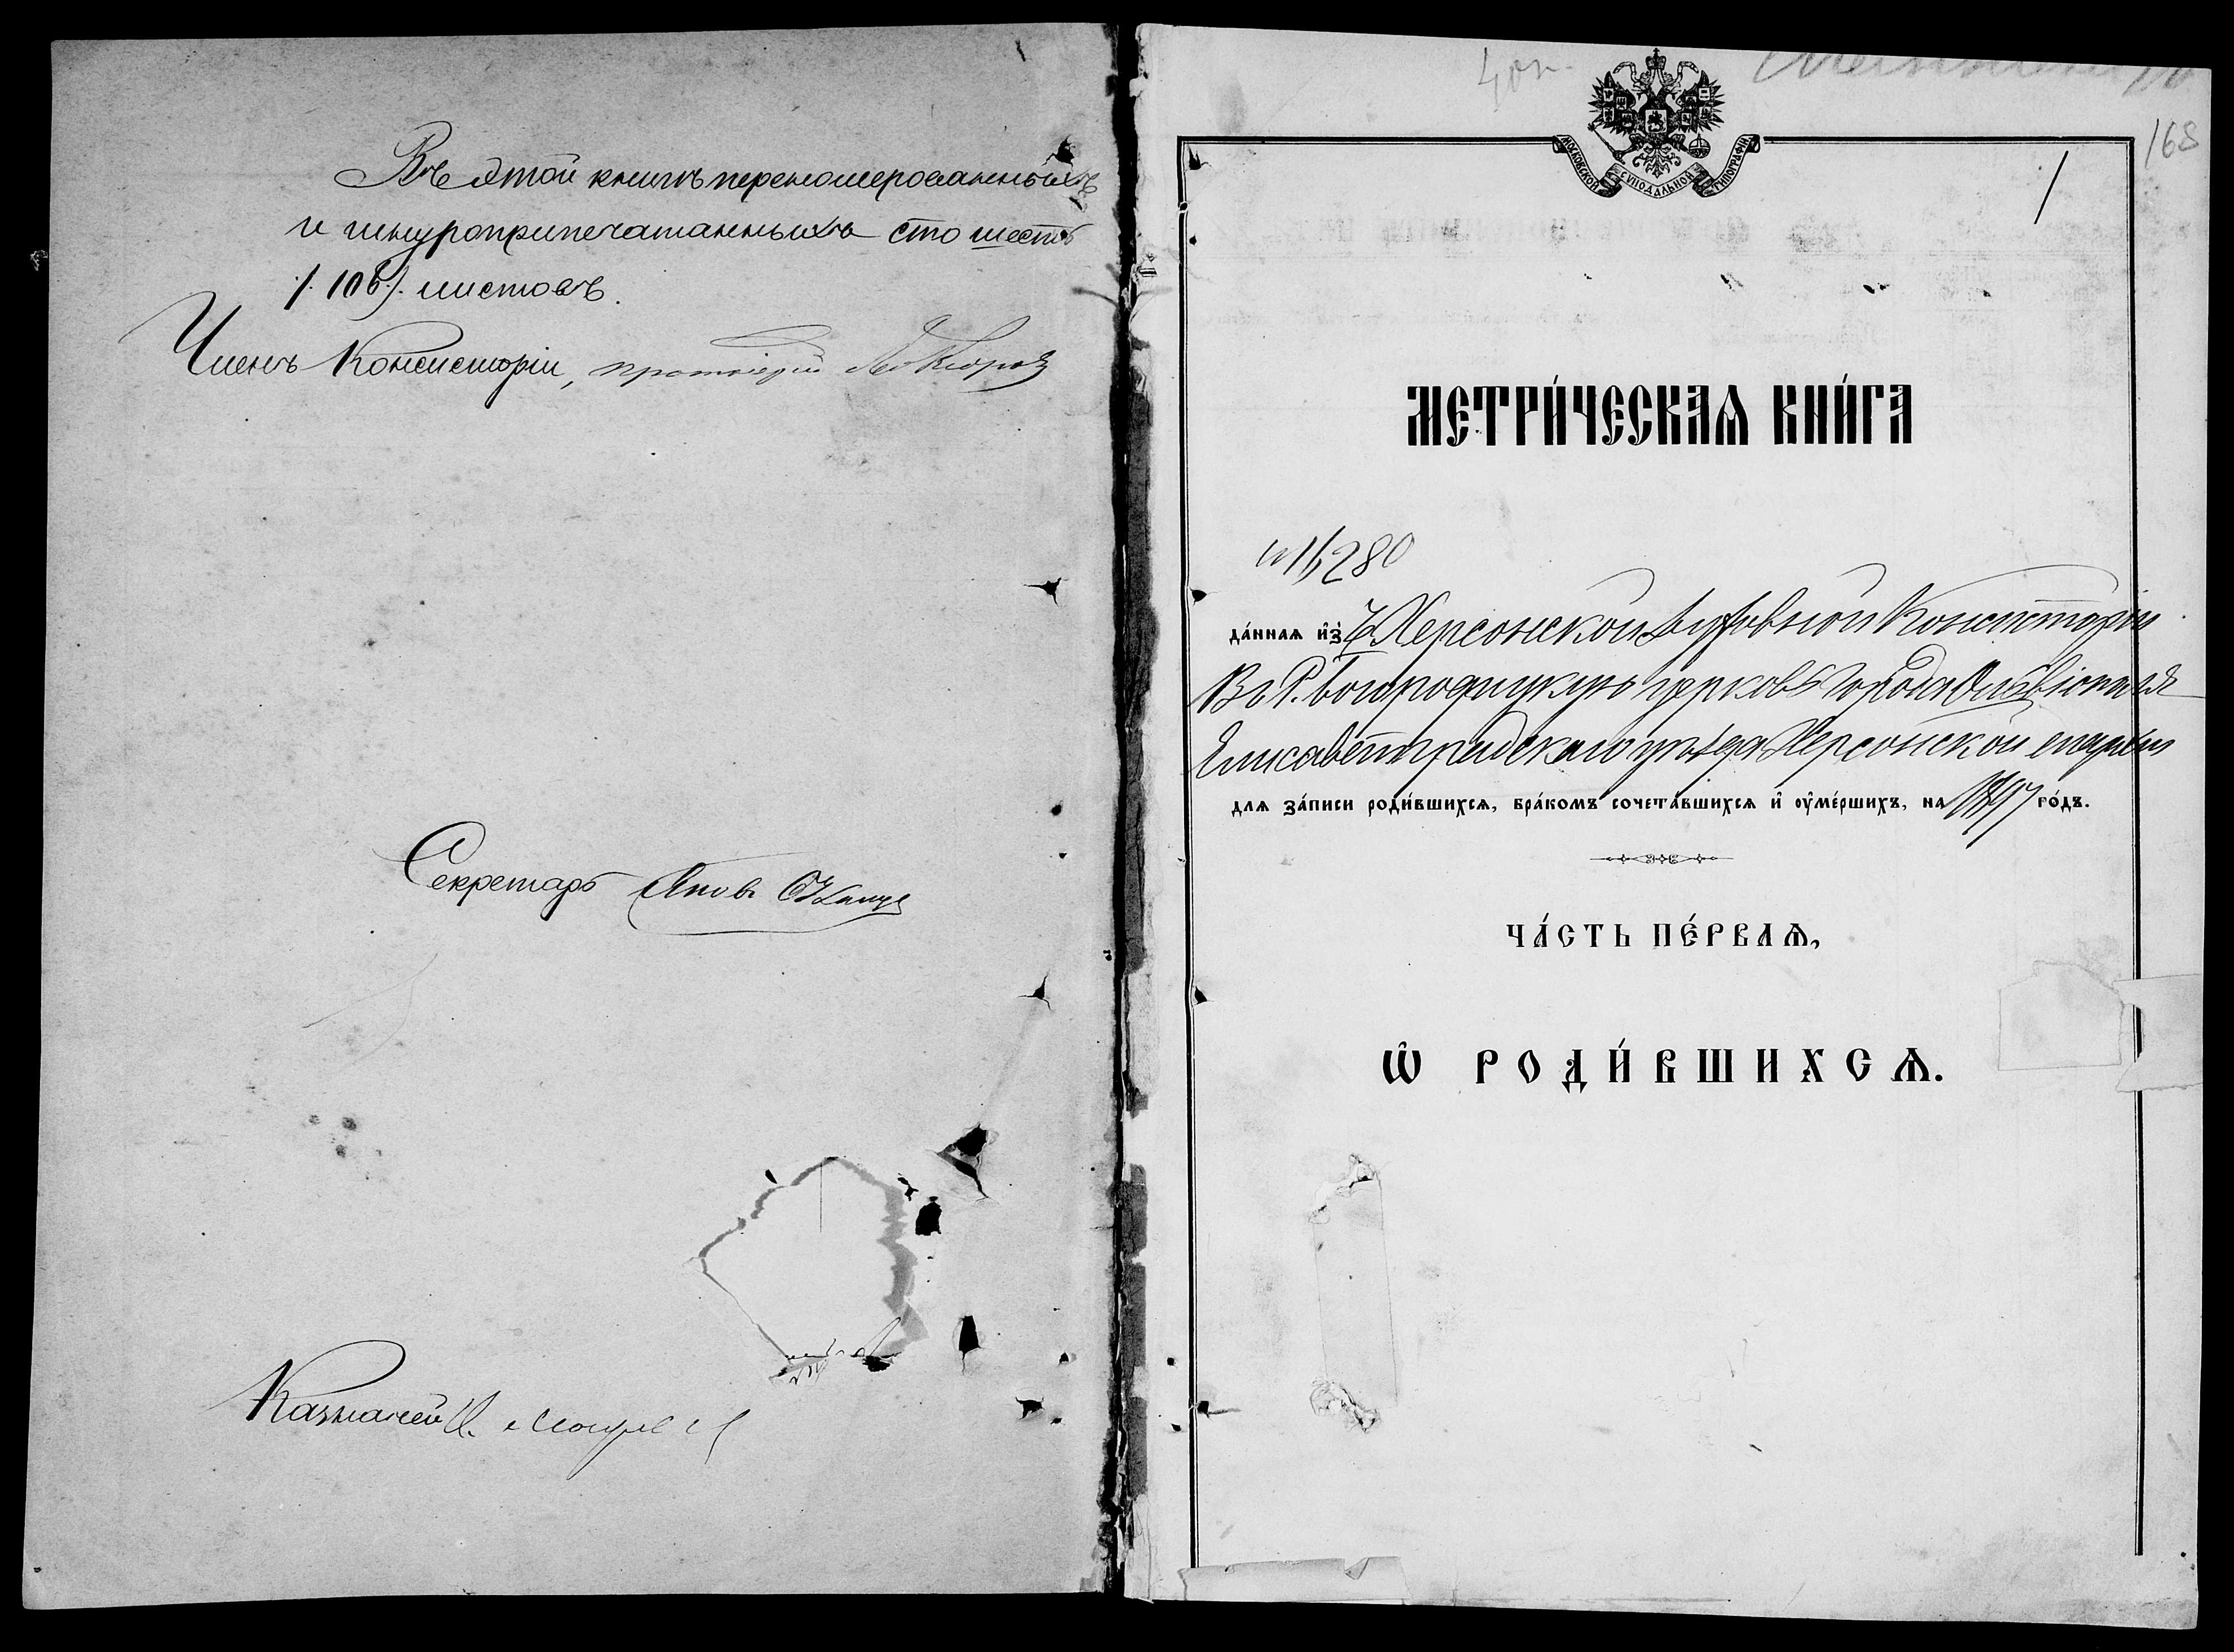 Въ этой книгѣ перенумерованныхъ
и шнуроприпечатанныхъ сто шесть
/. 106 ./. листовъ.
Членъ Консисторіи, протоіерей
Секретарь
Казначей
168
1
МОСКОВСКОЙ СѴНОДАЛЬНОЙ ТИПОГРАФІИ
МЕТРИ́ЧЕСКАѦ КНИ́ГА
№ 16280
да́ннаѧ и҆зъ Херсонской Духовной Консисторіи
Въ Р. Богородицкую церковь города Ольвіополя
Елисаветградскаго уѣзда Херсонской епархіи
длѧ за́писи роди́вшихсѧ, бра́комъ сочета́вшихсѧ и҆ ѹ҆ме́ршихъ, на 1897 го́дъ.
ЧА́СТЬ ПЕ́РВАѦ,
Ѡ҆ РОДИ́ВШИХСѦ.